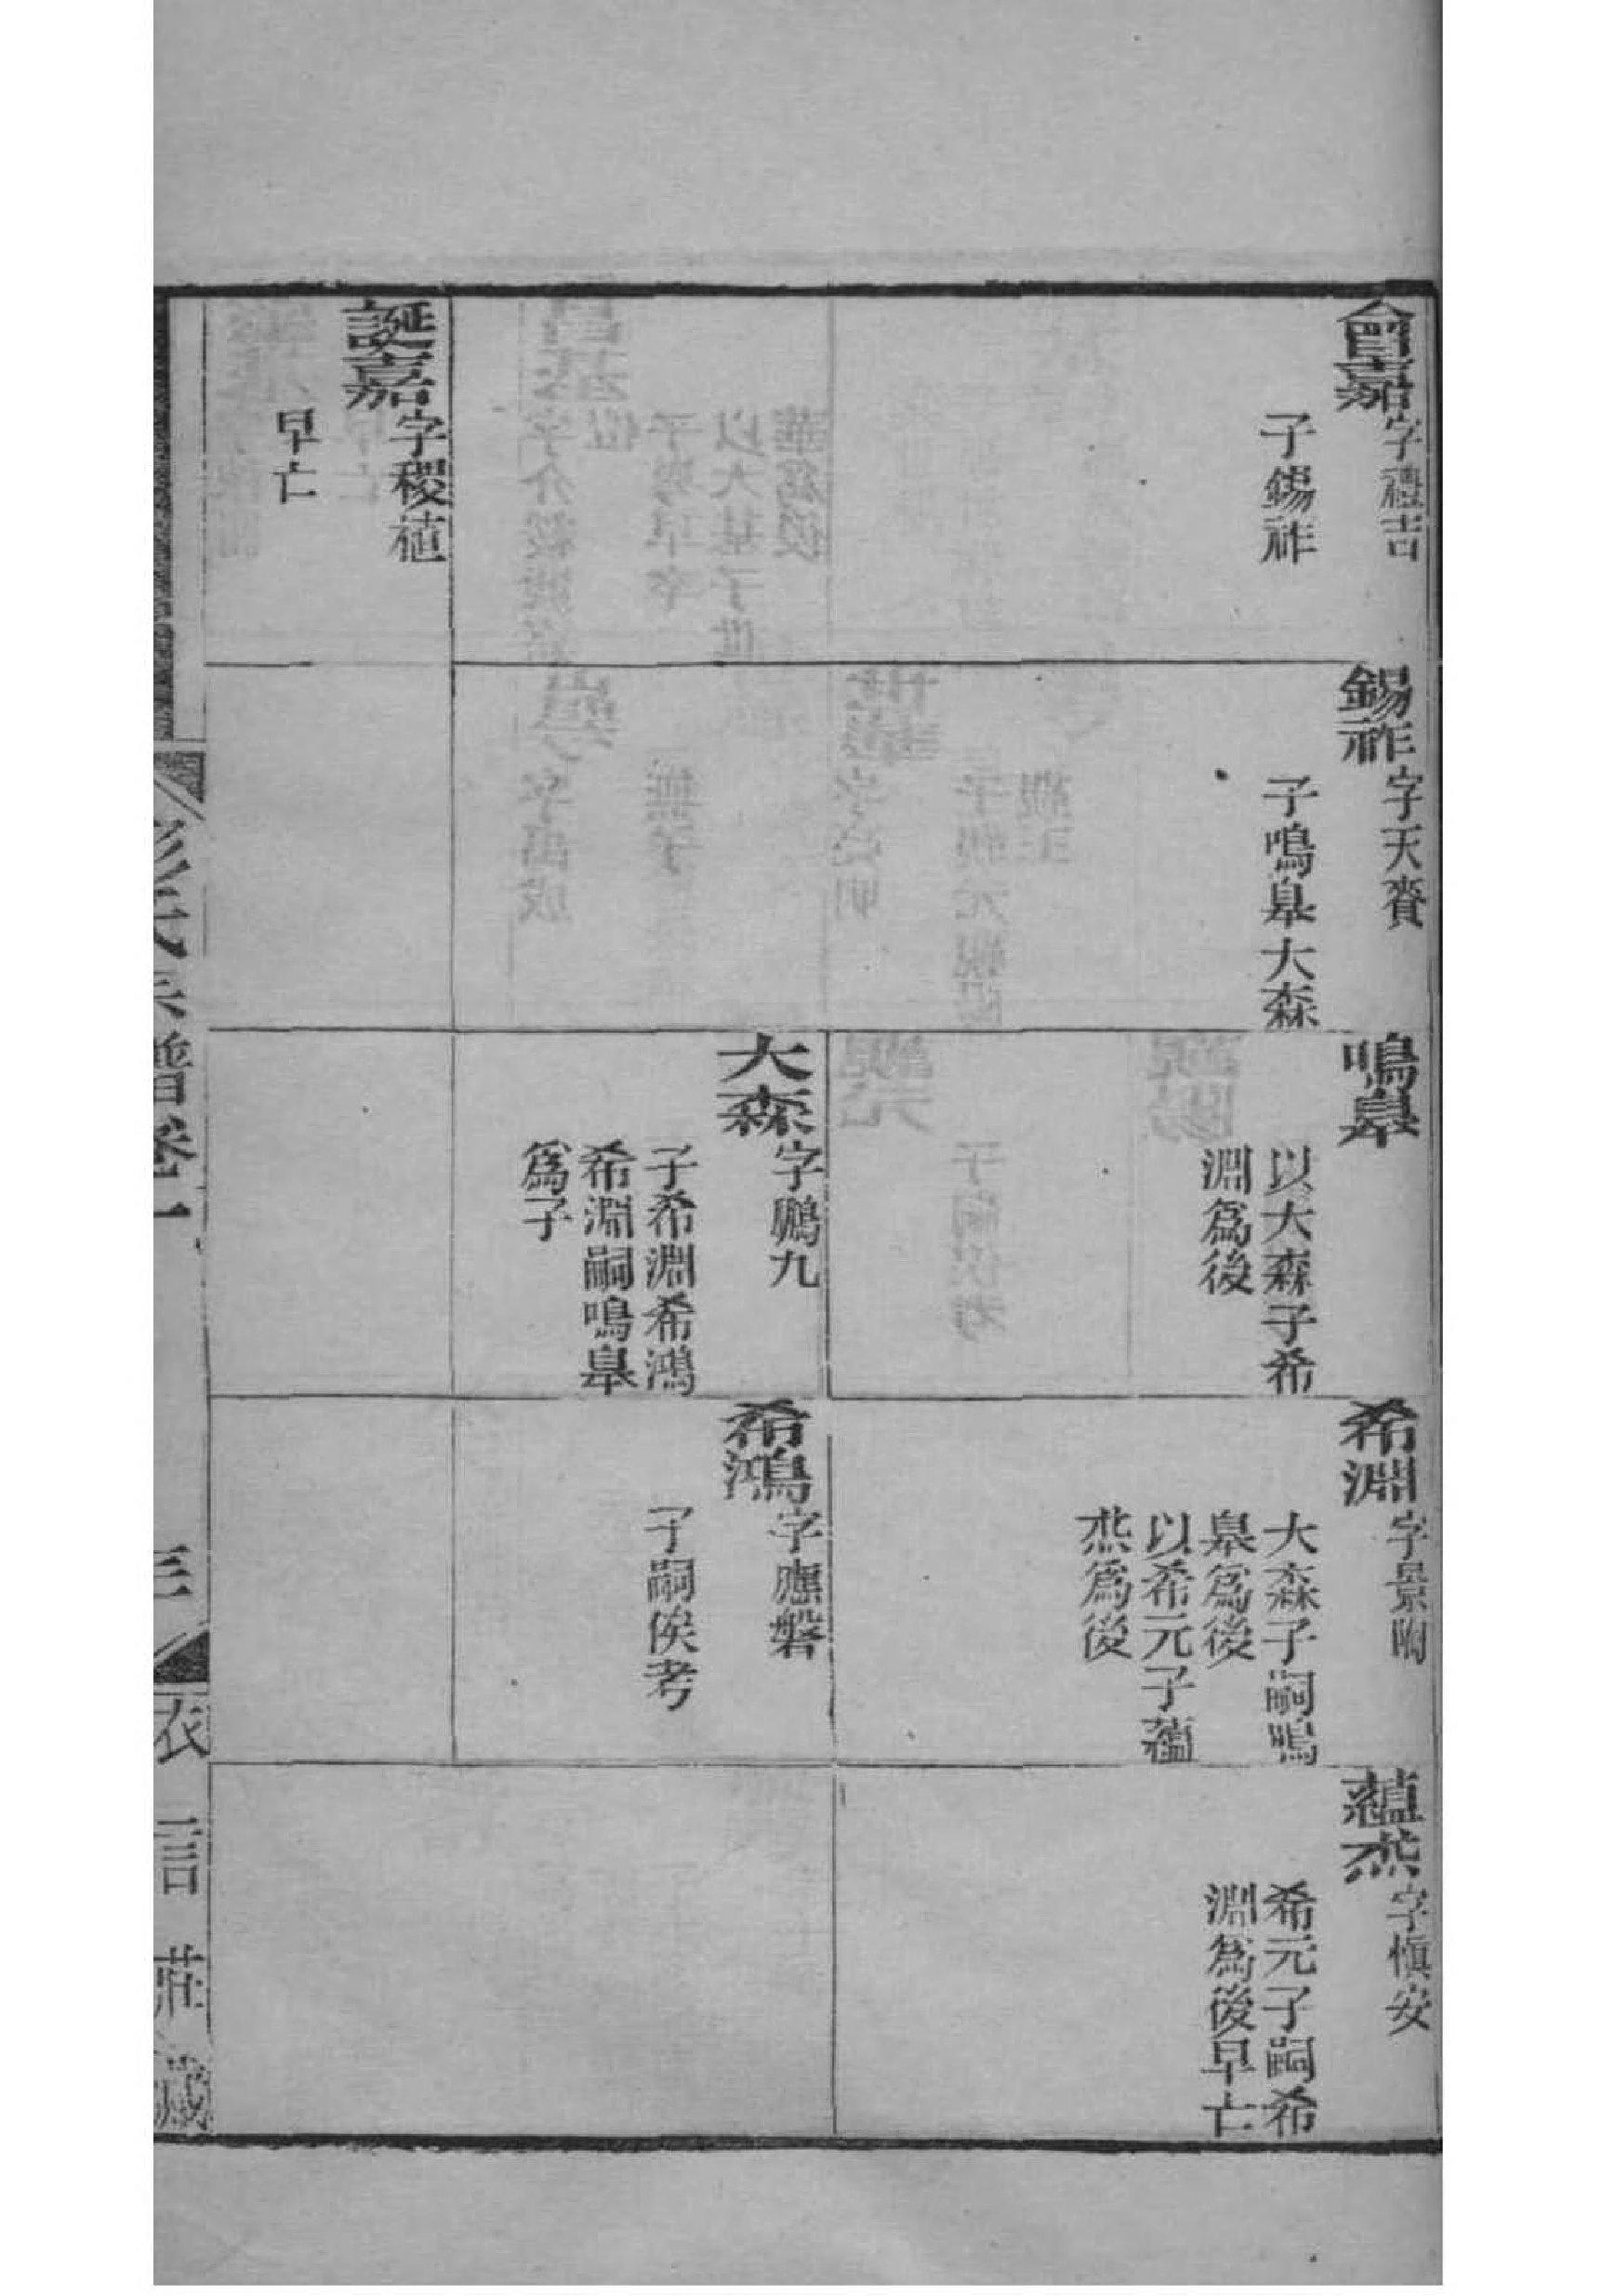 會嘉
字禮吉
子錫祚
誕嘉
字稷植
早亡
錫祚
字天賚
子鳴臯大森
鳴臯
以大森子希
淵爲後
大森
字鵬九
子希淵希鴻
希淵嗣鳴臯
爲子
希淵
字景陶
大森子嗣鳴
臯爲後
以希元子蘊
杰爲後
希鴻
字應磐
子嗣俟考
蘊杰
字慎安
希元子嗣希
淵爲後早亡
氏宗譜卷一
三
衣言莊藏